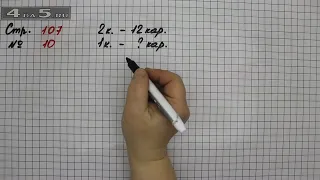 4на5.ru
Стр. 107
№ 10
2к. - 12 кар.
1к. - ? кар.